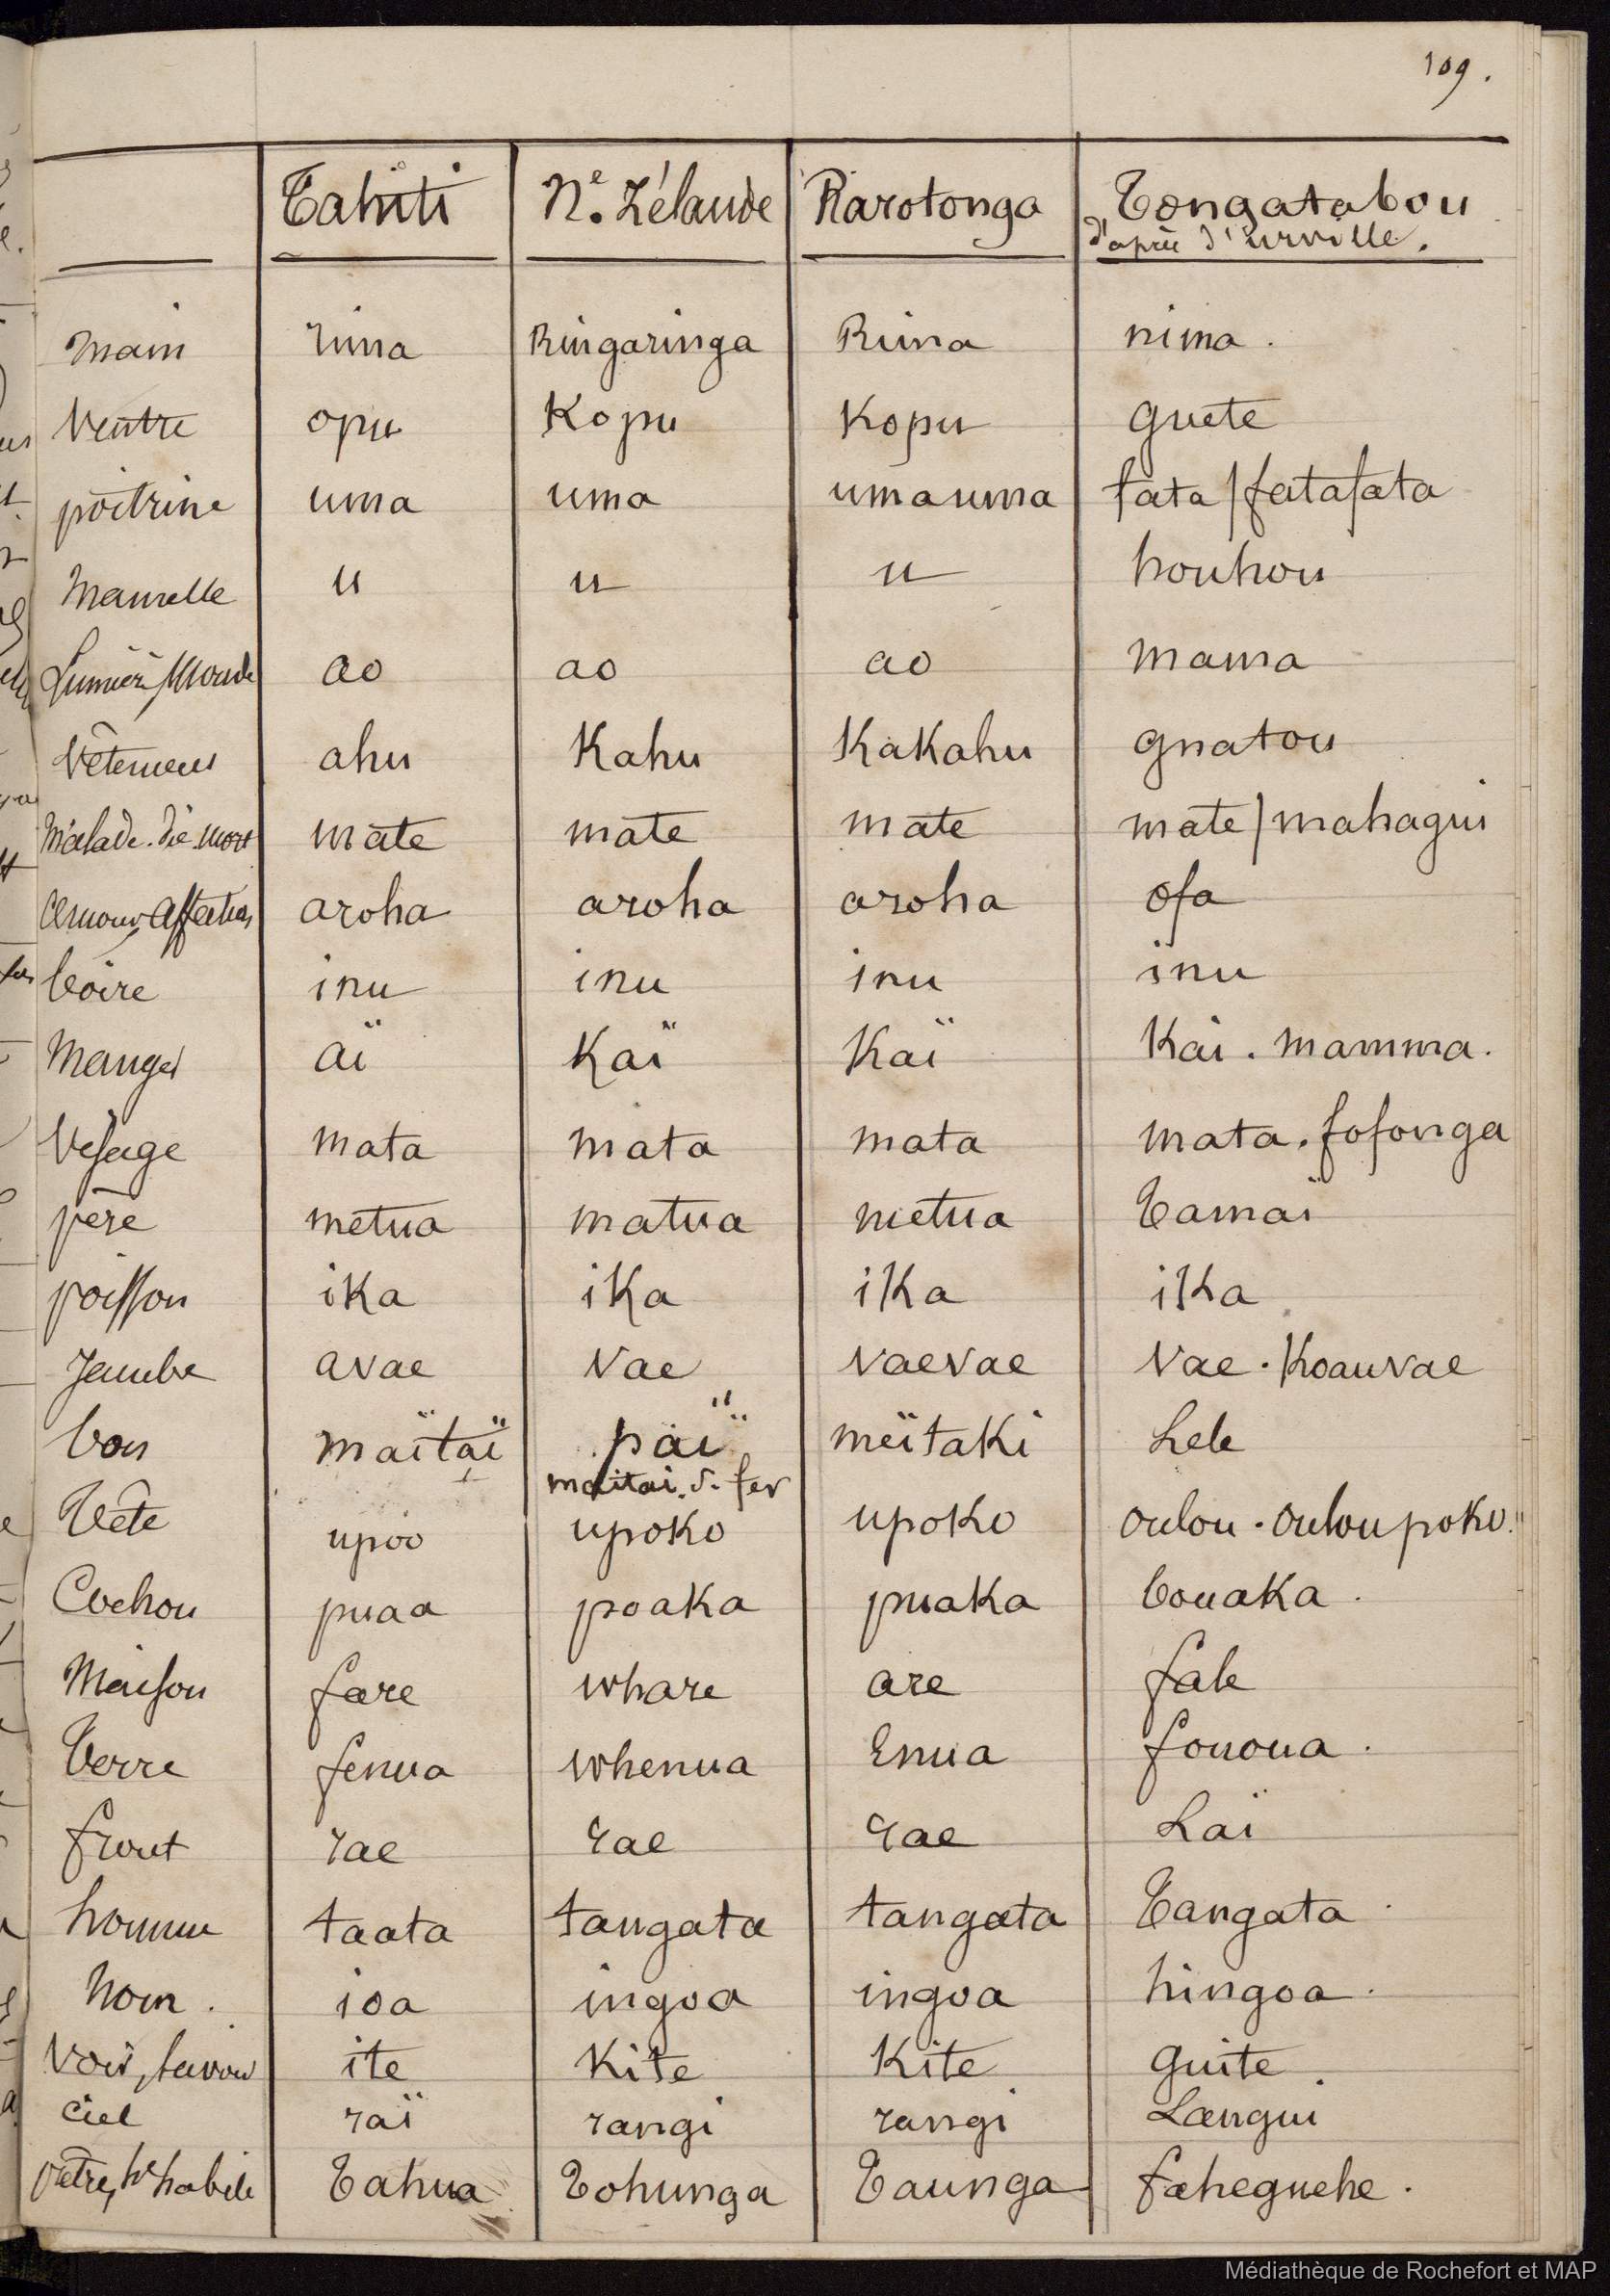 109.
Tahiti Nᵉ. Zélande Rarotonga Tongatabou
d'après d'urville.
Main rima Ringaringa Rima nima.
Ventre opu Kopu Kopu guete
poitrine uma uma umauma fata / fatafata
Mamelle u u u houhou
Lumière, Monde ao ao ao mama
Vêtemens ahu Kahu KaKahu gnatou
Malade. die. mort mate mate mate mate / mahagui
Amour, Affection aroha aroha aroha ofa
boire inu inu inu inu
Manger aï Kaï Kaï Kai. mamma.
Visage mata mata mata mata. fofonga
père metua matua metua Tamaï
poisson iKa iKa iKa iKa
Jambe avae vae vaevae vae. Koauvae
bon maïtaï païï meïtaKi Lele
maitai. s. fer
Tête upoo upoKo upoKo oulou. ouloupoKo."
Cochon puaa poaKa puaKa bouaKa.
Maison fare whare are fale
Terre fenua whenua Enua fonoua.
front rae rae rae Laï
homme taata tangata tangata Tangata.
Nom. ioa ingoa ingoa hingoa.
Voir, savoir ite Kite Kite guite.
Ciel raï rangi rangi Langui
Prêtre, hᵉ habile Tahua Tohunga Taunga faheguehe.
Médiathèque de Rochefort et MAP